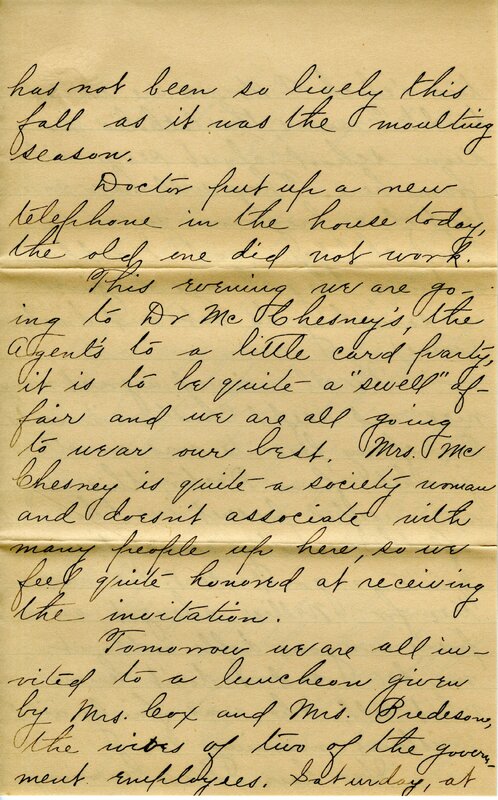 has not been so lively this
fall as it was the moulting
season.
Doctor put up a new
telephone in the house today,
the old one did not work.
This evening we are go-
ing to Dr Mc Chesney's, the
Agent's to a little card party,
it is to be quite a "swell" af-
fair and we are all going
to wear our best. Mrs. Mc
Chesney is quite a society woman
and doesn't associate with
many people up here, so we
feel quite honored at receiving
the invitation.
Tomorrow we are all in-
vited to a luncheon given
by Mrs. Cox and Mrs. Bredeson,
the wives of two of the govern-
ment employees. Saturday, at